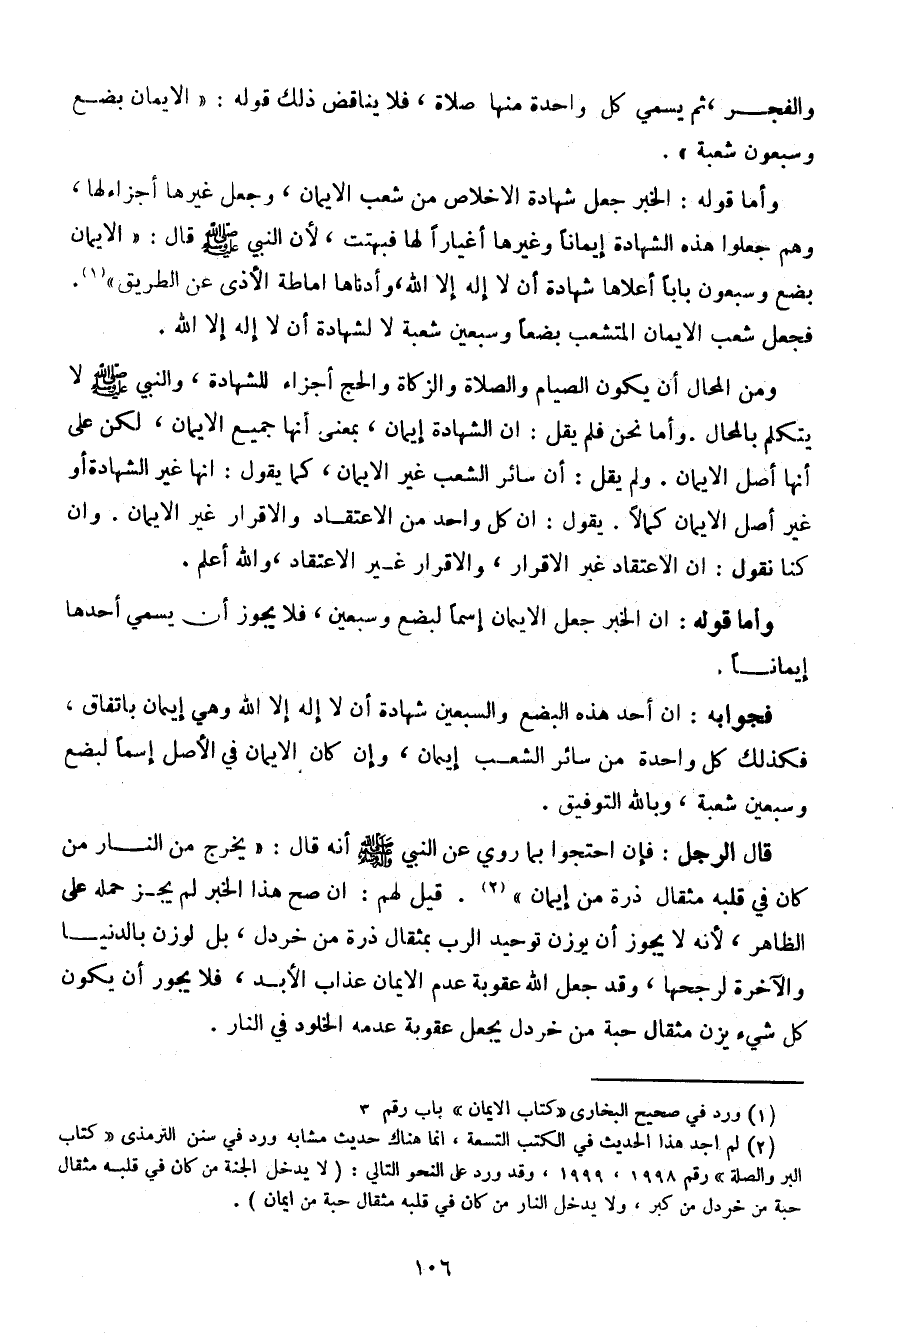 والفجـــر ،ثم يسمي كل واحدة منها صلاة ، فلا يناقض ذلك قوله : « الايمان بضـع
وسبعون شعبة » .
وأما قوله : الخبر جعل شهادة الاخلاص من شعب الايمان ، وجعل غيرها أجزاءلها ،
وهم جعلوا هذه الشهادة إيماناً وغيرها أغياراً لها فبهتت ، لأن النبي ﷺ قال : « الايمان
بضع وسبعون باباً أعلاها شهادة أن لا إله إلا الله،وأدناها اماطة الأذى عن الطريق»(١).
فجعل شعب الايمان المتشعب بضعاً وسبعين شعبة لا لشهادة أن لا إله إلا الله .
ومن المحال أن يكون الصيام والصلاة والزكاة والحج أجزاء للشهادة ، والنبي ﷺ لا
يتكلم بالمحال .وأما نحن فلم يقل : ان الشهادة إيمان ، بمعنى أنها جميع الايمان ، لكن على
أنها أصل الايمان . ولم يقل : أن سائر الشعب غير الايمان ، كما يقول : انها غير الشهادةأو
غير أصل الايمان كمالاً . يقول : ان كل واحد من الاعتقـاد والاقرار غير الايمان . وان
كنا نقول : ان الاعتقاد غير الاقرار ، والاقرار غـير الاعتقاد ،والله أعلم .
وأما قوله : ان الخبر جعل الايمان إسماً لبضع وسبعين ، فلا يجوز أن يسمي أحدها
إيمانــاً .
فجوابه : ان أحد هذه البضع والسبعين شهادة أن لا إله إلا الله وهي إيمان باتفاق ،
فكذلك كل واحدة من سائر الشعـب إيمان ، وإن كان الايمان في الأصل إسماً لبضع
وسبعين شعبة ، وبالله التوفيق .
قال الرجل : فإن احتجوا بما روي عن النبي ﷺ أنه قال : « يخرج من النـــار من
كان في قلبه مثقال ذرة من إيمان » (٢) . قيل لهم : ان صح هذا الخبر لم يجـز حمله على
الظاهر ، لأنه لا يجوز أن يوزن توحيد الرب بمثقال ذرة من خردل ، بل لوزن بالدنيــا
والآخرة لرجحها ، وقد جعل الله عقوبة عدم الايمان عذاب الأبـد ، فلا يجور أن يكون
كل شيء يزن مثقال حبة من خردل يجعل عقوبة عدمه الخلود في النار .
(١) ورد في صحيح البخارى «كتاب الايمان » باب رقم ٣
(٢) لم اجد هذا الحديث في الكتب التسعة ، انما هناك حديث مشابه ورد في سنن الترمذى « كتاب
البر والصلة » رقم ١٩٩٨ ، ١٩٩٩ ، وقد ورد على النحو التالي : ( لا يدخل الجنة من كان في قلبـه مثقال
حبة من خردل من كبر ، ولا يدخل النار من كان في قلبه مثقال حبة من ايمان ) .
١٠٦